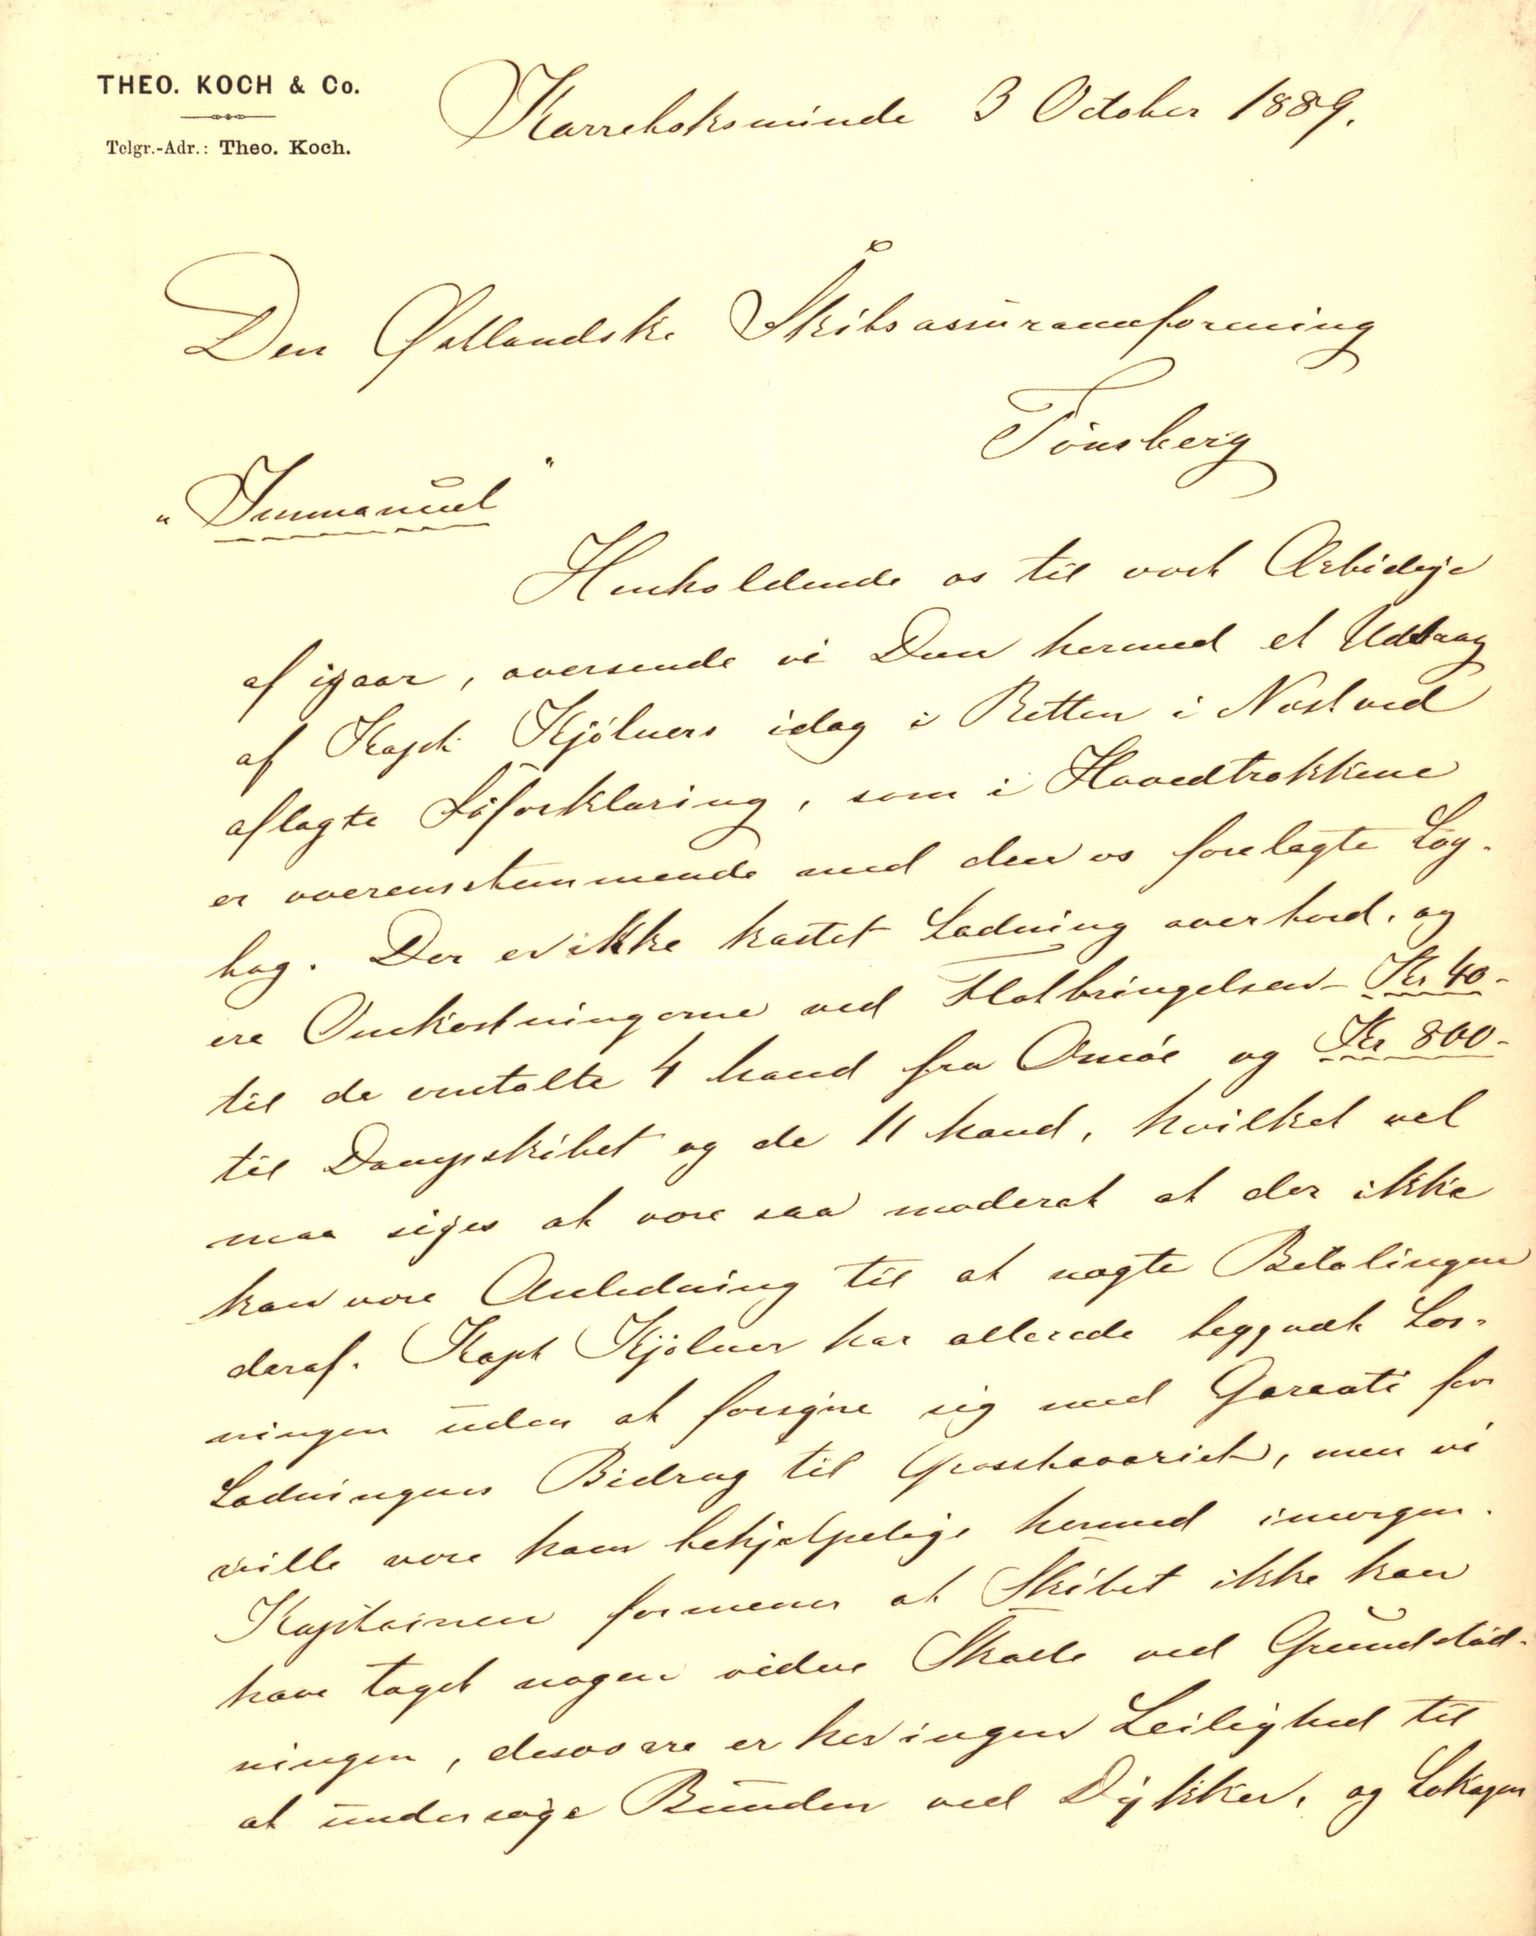 THEO. KOCH & Co.
Telgr.-Adr.: Theo. Koch.
Karrebæksminde 3 October 1889.
Den Østlandske Skibsassuranceforening
Tönsberg
"Immanuel"
Henholdende os til vort Ærbödige
af igaar, oversende vi Dem hermed et Uddrag
af Kapt Kjölners idag i Retten i Nestved
aflagte Söforklaring, som i Hovedtrækkene
er overensstemmende med den os forelagte Log-
bog. Der er ikke kastet Ladning overbord, og
ere Omkostningerne ved Flotbringelsen Kr 40-
til de omtalte 4 Mand fra Omöe og Kr 800-
til Dampskibet og de 11 Mand, hvilket vel
maa siges at være saa moderat at der ikke
kan være Anledning til at nægte Betalingen
deraf. Kapt Kjölner har allerede begyndt Los-
ningen uden at forsyne sig med Garanti for
Ladningens Bidrag til Grosshavariet, men vi
ville være ham behjælpelige hermed imorgen.
Kapitainen formener at Skibet ikke kan
have taget nogen videre Skade ved Grundstöd-
ningen, desværre er her ingen Leilighed til
at undersöge Bunden ved Dykker, og Lækagen